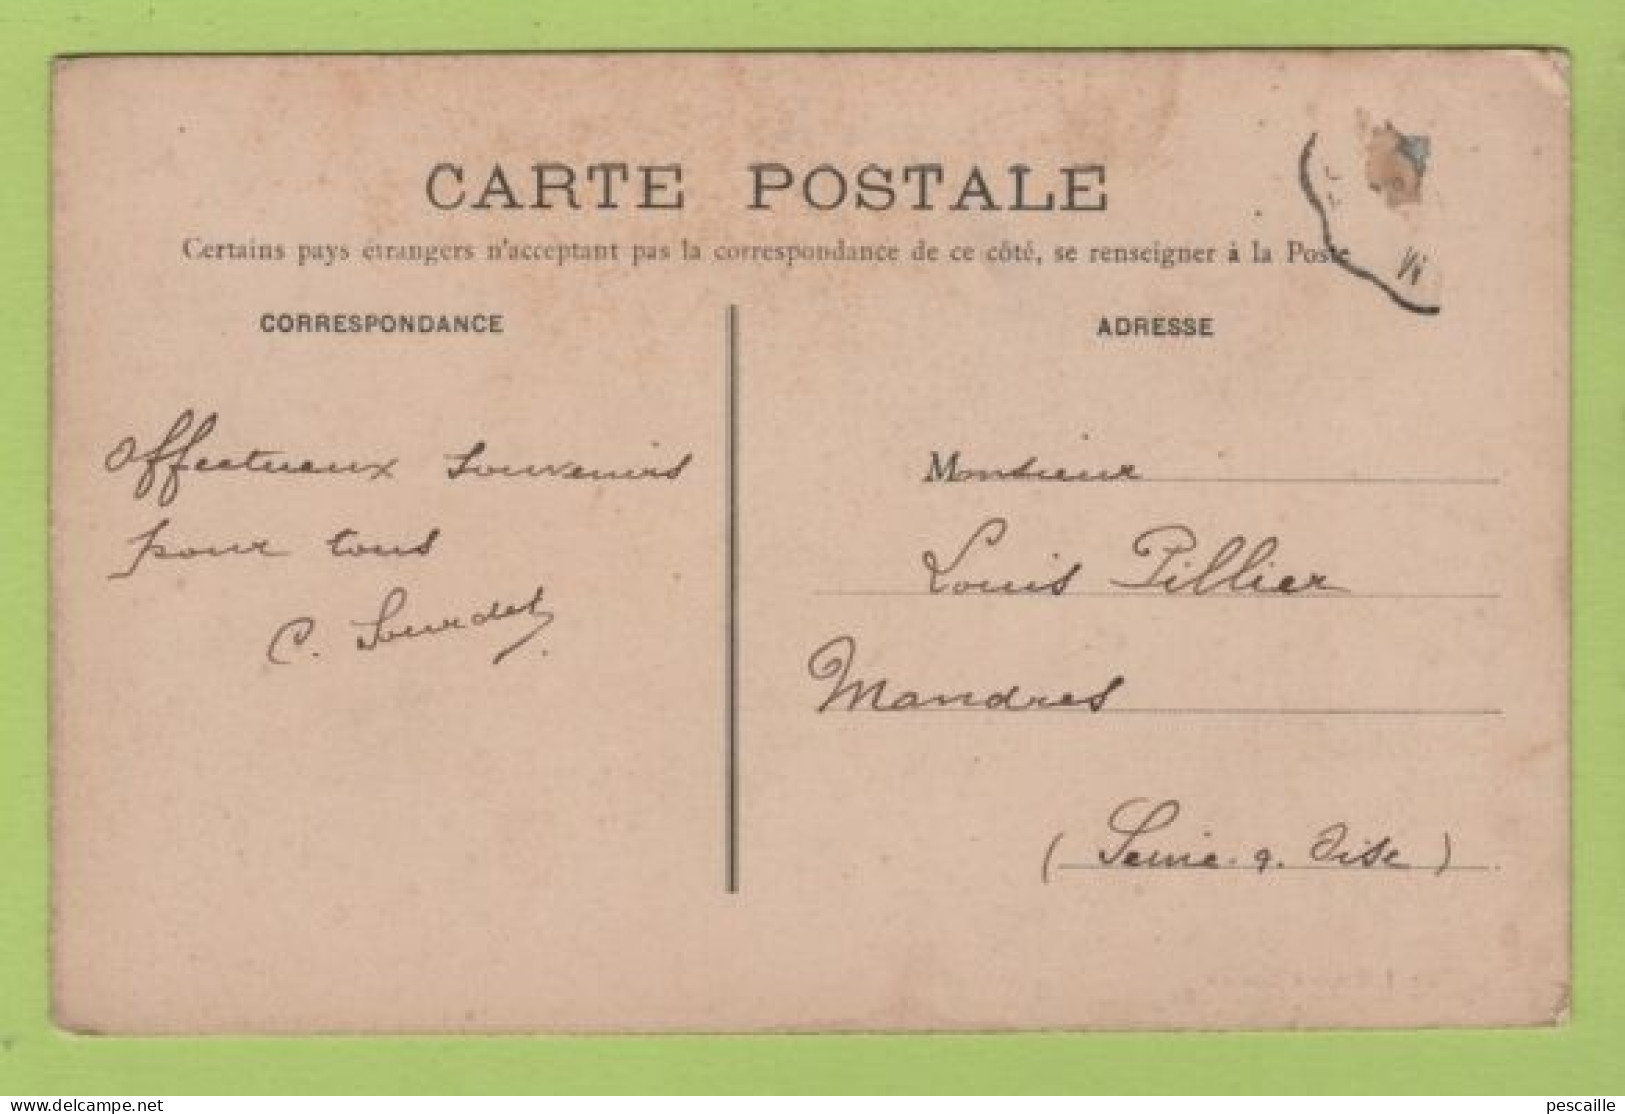 CARTE POSTALE
Certains pays étrangers n'acceptant pas la correspondance de ce côté, se renseigner à la Poste
CORRESPONDANCE
ADRESSE
Affectueux souvenirs
pour tous
C. Sourdet
Monsieur
Louis Pillier
Mandres
(Seine-&-Oise)
pescaille